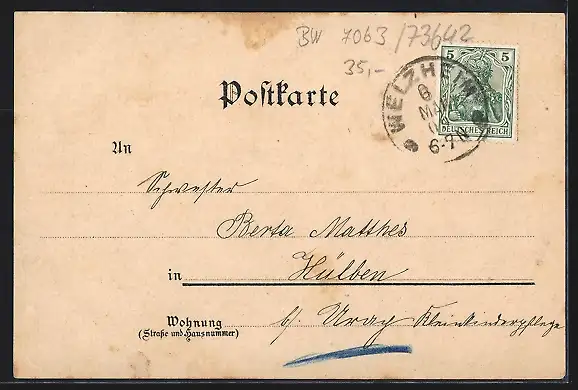 BW 7063/73642
35,-
5 5
DEUTSCHES REICH
WELZHEIM
6
MAI
6-7 N
Postkarte
An
Schwester
Berta Matthes
in Hülben
Wohnung b/ Urach Kleinkinderpflege
(Straße und Hausnummer)